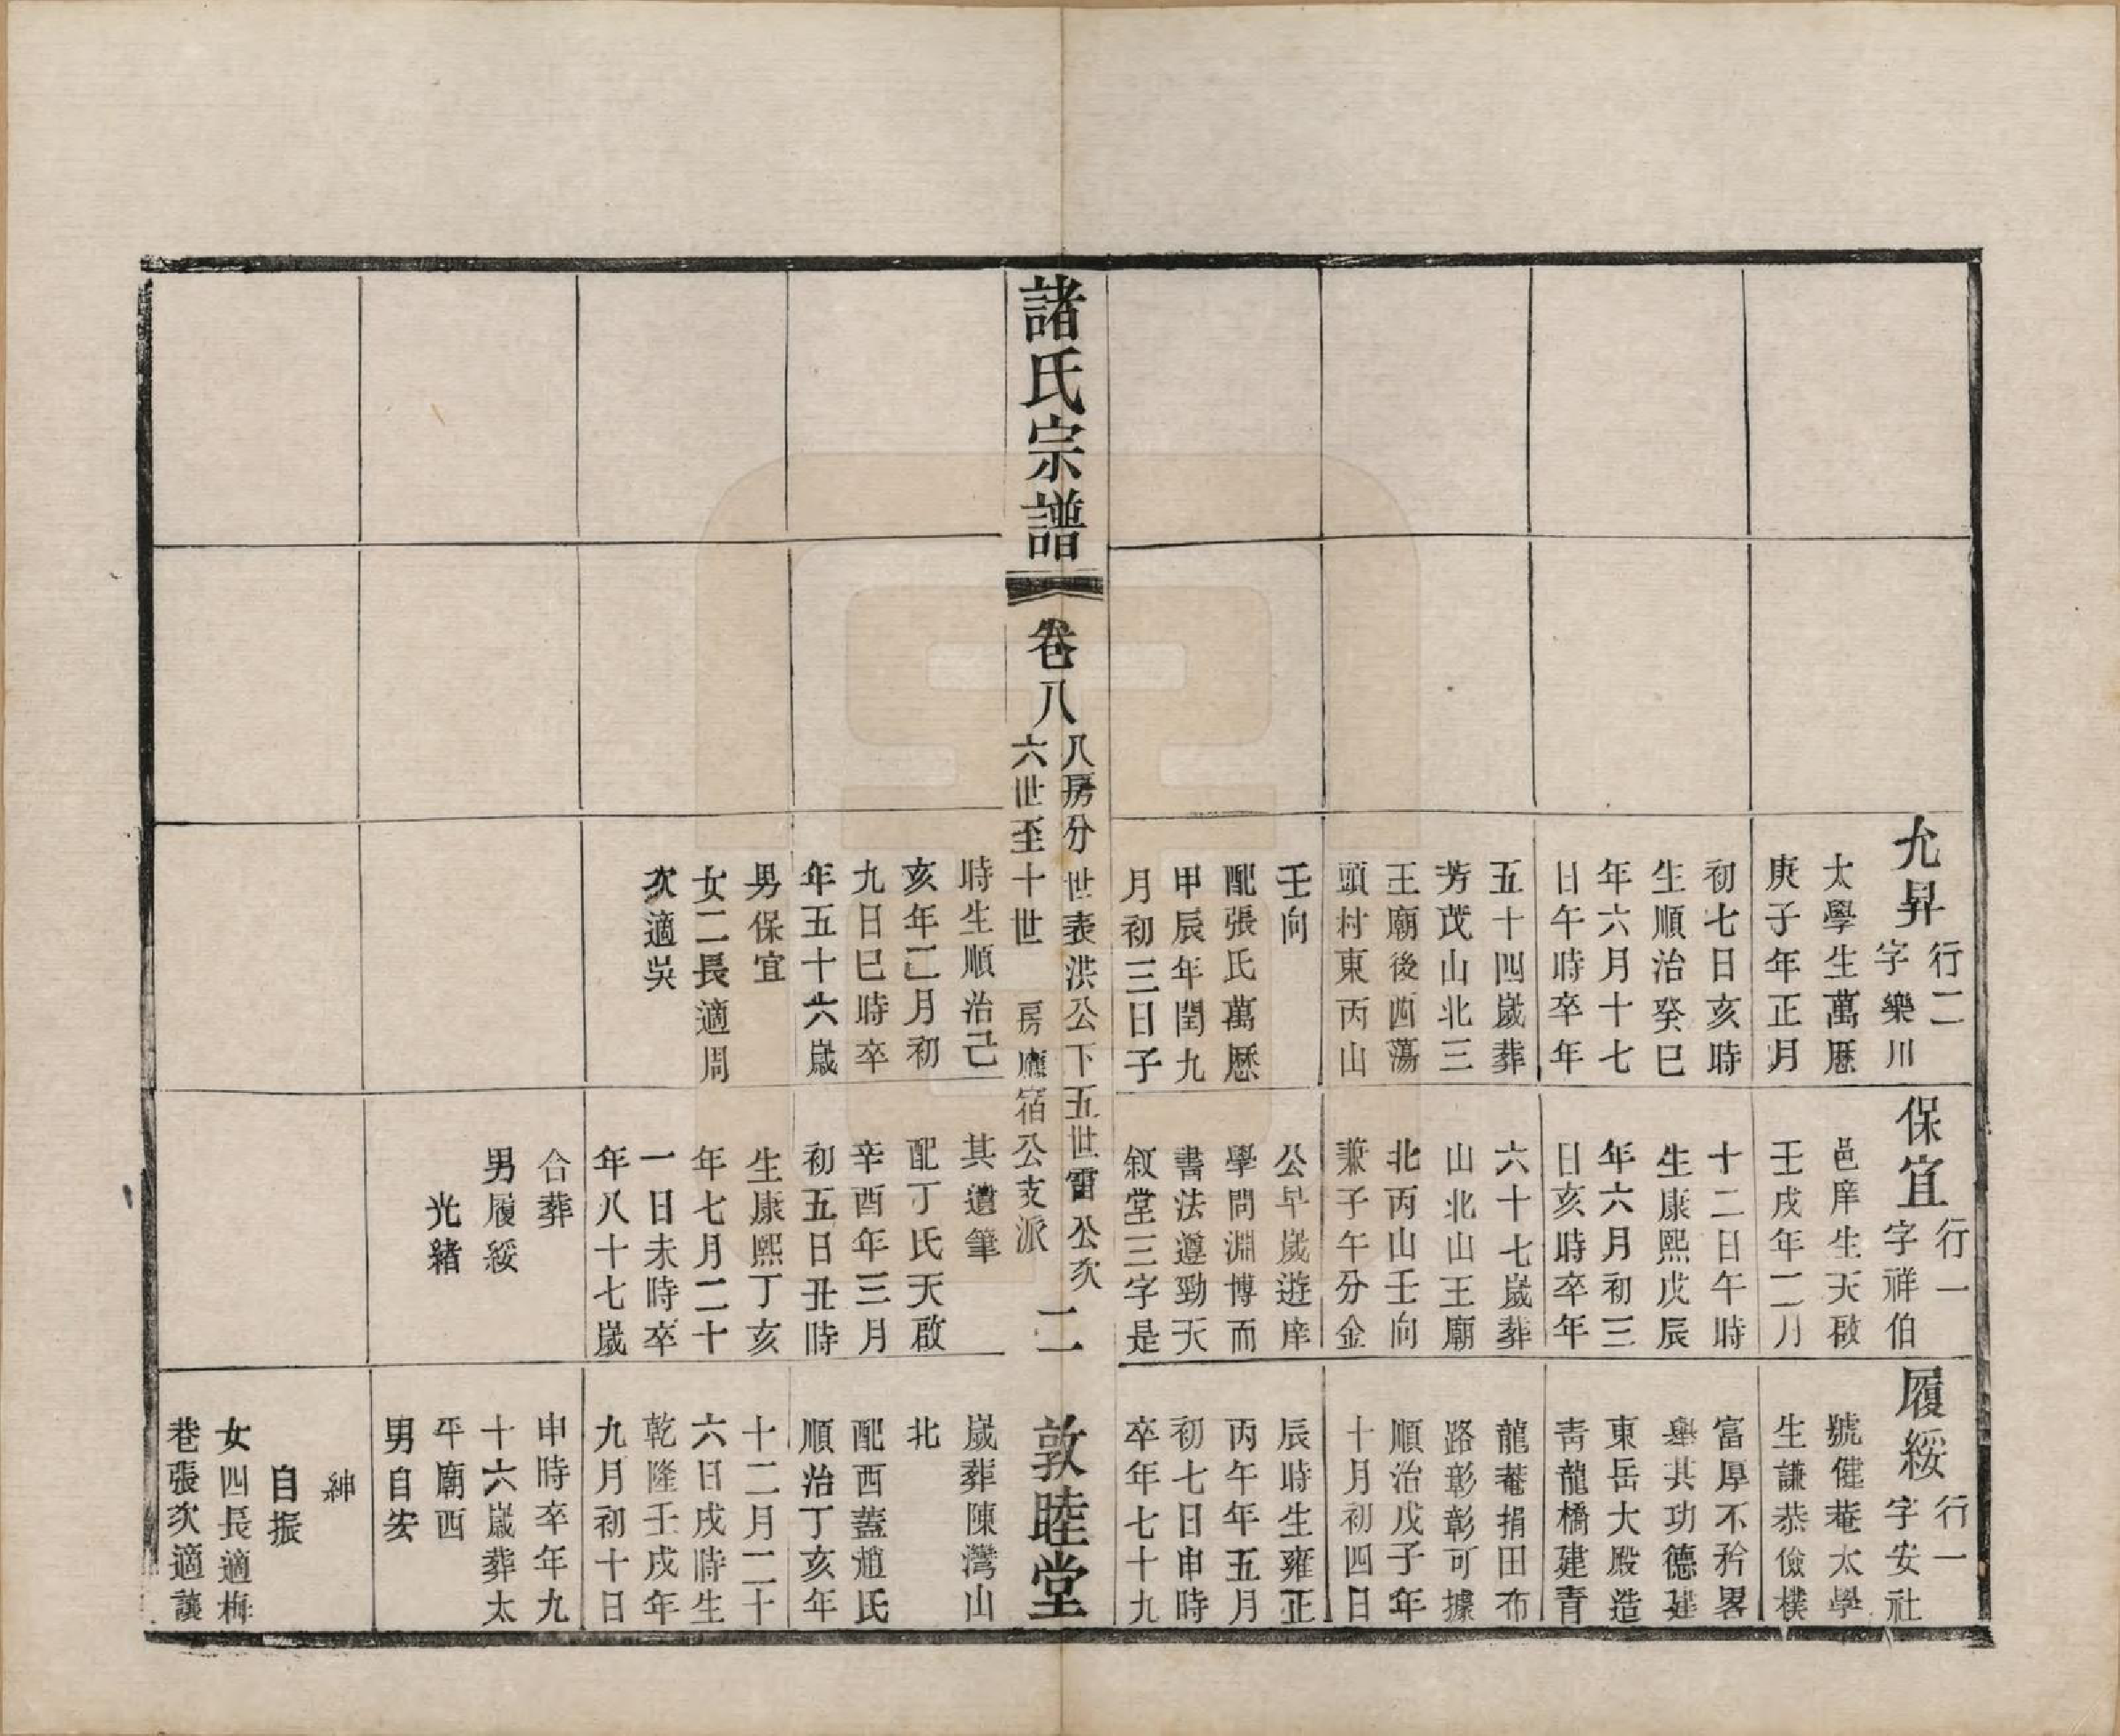 允昇
行二
字樂川
太學生萬厯
庚子年正月
初七日亥時
生順治癸巳
年六月十七
日午時卒年
五十四歲葬
芳茂山北三
王廟後西蕩
頭村東丙山
壬向
配張氏萬厯
甲辰年閏九
月初三日子
時生順治己
亥年二月初
九日巳時卒
年五十六歲
男保宜
女二長適周
次適吳
保宜
行一
字祥伯
邑庠生天啟
壬戌年二月
十二日午時
生康熙戊辰
年六月初三
日亥時卒年
六十七歲葬
山北山王廟
北丙山壬向
兼子午分金
公早歲遊庠
學問淵博而
書法遵勁天
叙堂三字是
其遺筆
配丁氏天啟
辛酉年三月
初五日丑時
生康熙丁亥
年七月二十
一日未時卒
年八十七歲
合葬
男履綏
光緒
履綏
行一
字安社
號僅菴太學
生謙恭儉樸
富厚不矜畧
舉其功德建
東岳大殿造
青龍橋建青
龍菴捐田布
路彰彰可據
順治戊子年
十月初四日
辰時生雍正
丙午年五月
初七日申時
卒年七十九
歲葬陳灣山
北
配西蓋趙氏
順治丁亥年
十二月二十
六日戌時生
乾隆壬戌年
九月初十日
申時卒年九
十六歲葬太
平廟西
男自安
紳
自振
女四長適梅
巷張次適讓
諸氏宗譜
卷八
八房分世表洪公下五世雷公次
六世至十世 房應宿公支派
二
敦睦堂